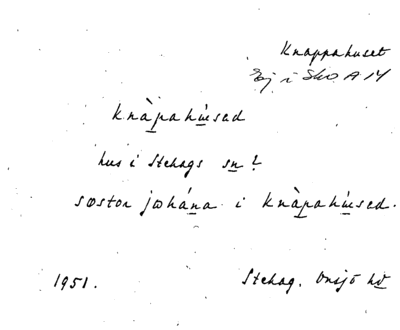 Knappahuset
Ej i SkO A 14
knàpahúsəd
hus i Stehags sn?
søstər johána i knàpahúsəd.
1951. Stehag. Onsjö hd